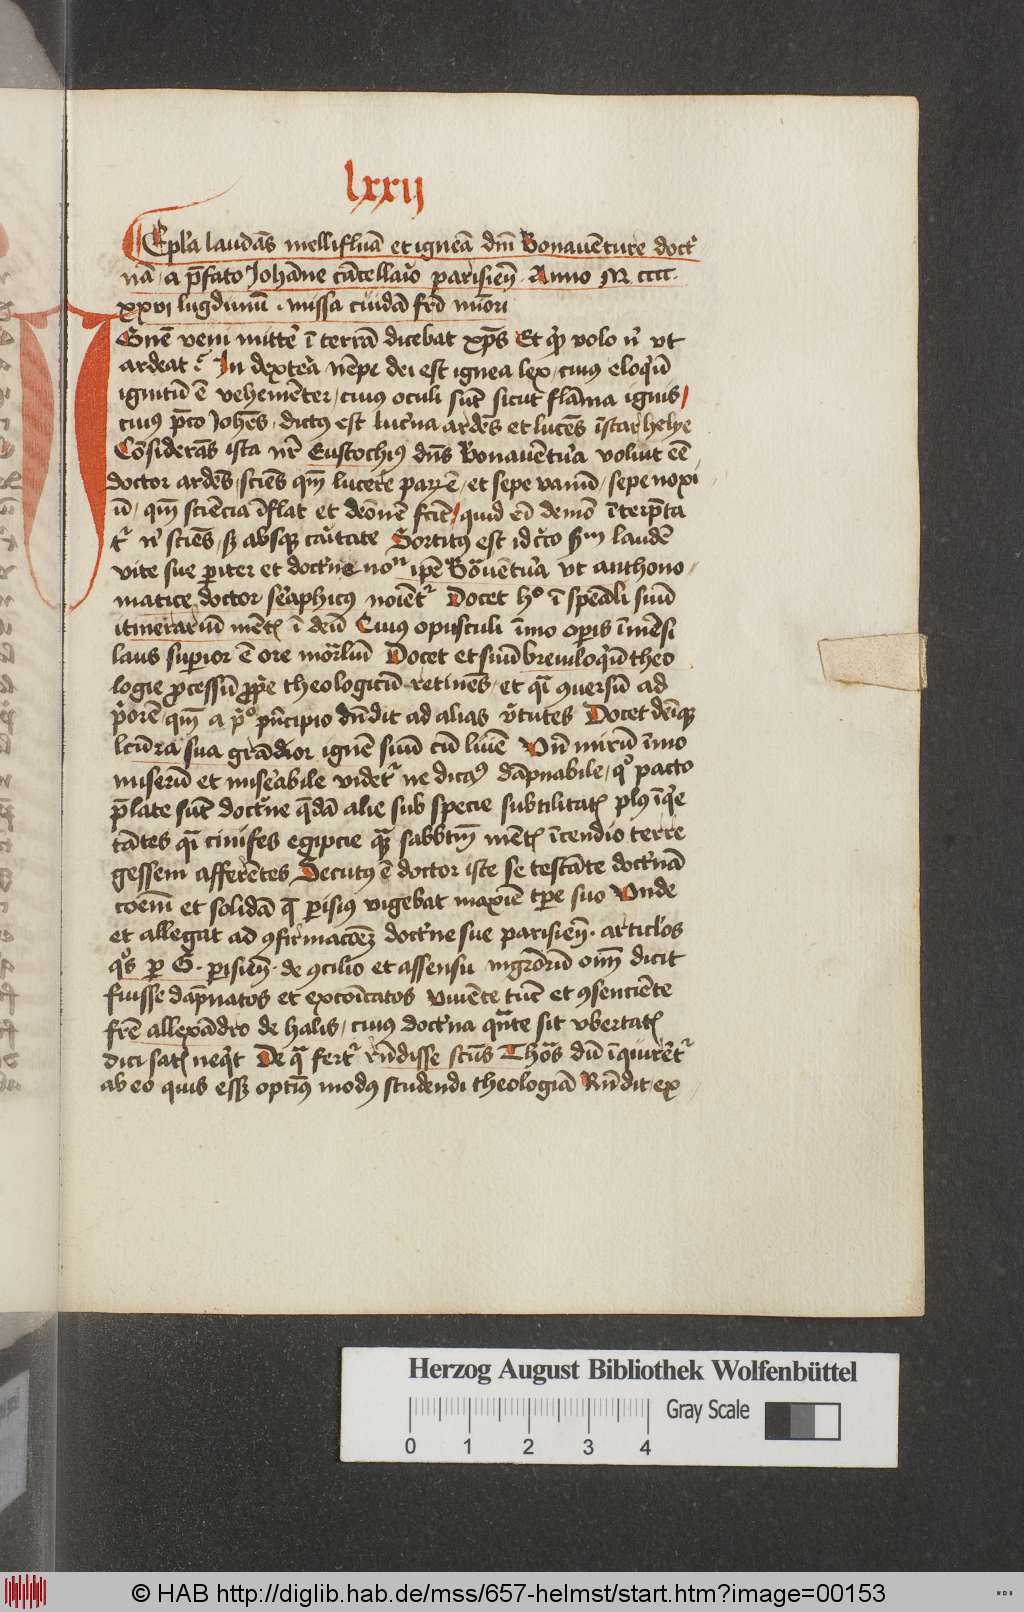 lxxij
Epl'a laudās mellifluā et igneā dm̄ Bonauēture doct'
nā, a p̄fato Johāne cācellario parisieñ. Anno M cccc.
xxvj lugdunū. missa cuidā fr̄i mīori
Gnē veni mitte' ī terrā dicebat xp̄s Et qd volo n' vt
ardeat? In dextera nēpe dei est ignea lex, cuius eloq'ū
ignitū ē vehemēter, cuius oculi sūt sicut flāma ignis/
cuius p̄co Joh̄es, dictus est lucerna ardēs et lucēs īstar helye
Cōsiderās ista nr̄ Eustochius dn̄s Bonauētura voluit eē
doctor ardēs, sciēs qm̄ lucere parū ē, et sepe vanū, sepe noxi
ū, qm̄ sciēcia īflat et deōnē fcīt/ quid ei demō īterp̄ta
t' n' sciēs, s absq caritate Sortitus est idcirco s'm laudē
vite sue pariter et doct'ne noᵐ ip̄e Bōauētu'a vt anthono-
matice doctor se'aphicus noiēt' Docet hᵒ ī spēali suū
itinerariū mēt ī deū Cuius opusculi īmo operis īmēsi
laus superior ē ore mortaliū Docet et suū breuiloq'ū theo
logie p'cessū p'p'e theologicū retinēs, et q'i ɔuersū ad
p'orē, qm̄ a p'ᵒ p'ncipio dn̄dit ad alias v'tutes Docet deīq
lcūra sua grādior ignē suū cū lumē Vn̄ mirū īmo
miserū et mise'abile videt' ne dicaꝰ dāpnabile, qᵒ pacto
p̄late sūt doct'ne q̄dā alie sub specie subtilitat plus īq'e
tātes q'i cinifes egipcie q' sabbtm̄ mēt īcendio terre
gessem afferētes Secutus ē doctor iste se testāte doct'nā
coēm et solidā q̄ p'isius vigebat maxīe tp̄e suo Vnde
et allegat ad ɔfirmacōeȝ doct'ne sue parisieñ. articl'os
q'os per G. p'isieñ. de ɔcilio et assensu mgrōrū om̄ dicit
fuisse dāpnatos et excōicatos viuēte tūc et ɔsenciēte
fr̄e allexādro de halis, cuius doct'na q'nte sit vbertat
dici sat neq't De q' fert' rn̄disse scūs Thōs dū īquirēt'
ab eo quis esset optimus modus studendi theologiā Rn̄dit ex
Herzog August Bibliothek Wolfenbüttel
Gray Scale
0 1 2 3 4
© HAB http://diglib.hab.de/mss/657-helmst/start.htm?image=00153